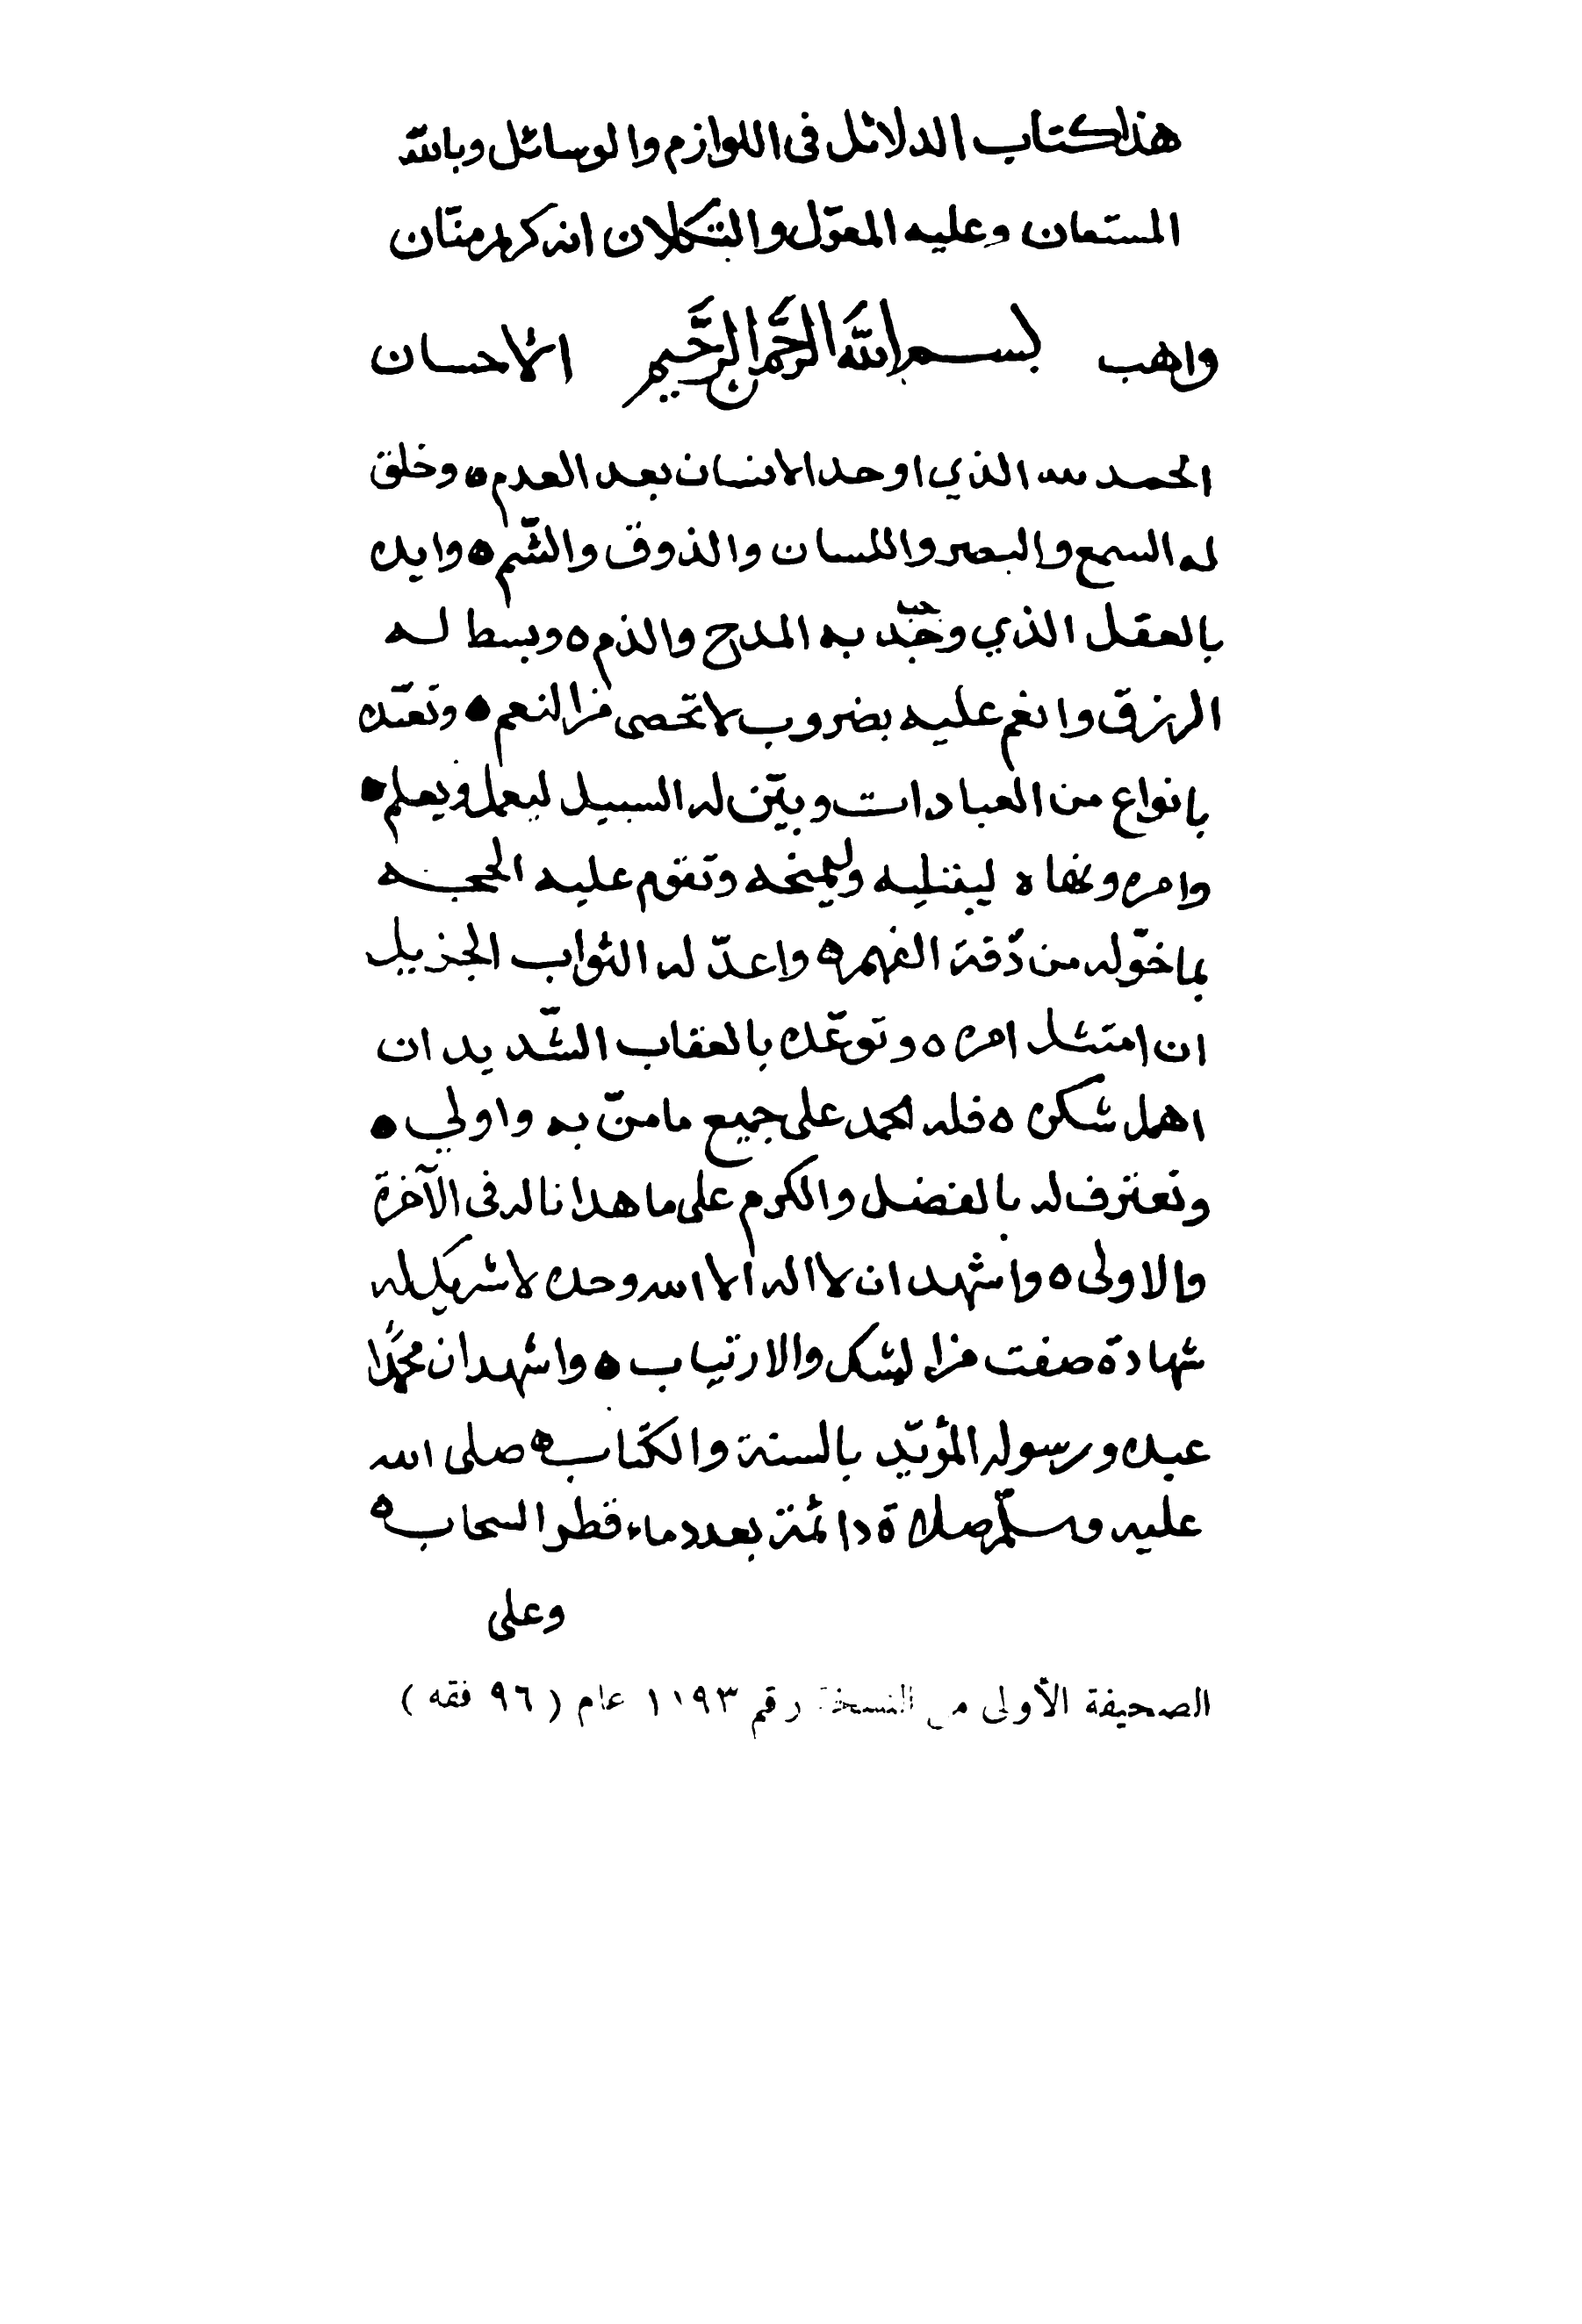 هذا كتاب الدلائل فى اللوازم والوسائل وبالله
المستعان وعليه المعوّل والتكلان انه كريم منّان
واهب بسم الله الرَّحمن الرَّحيم الاحسان
الحمد لله الذي اوجد الانسان بعد العدم ه وخلق
له السمع والبصر واللسان والذوق والشّم ه وايده
بالعقل الذي وجب به المدح والذم ه وبسط له
الرزق وانعم عليه بضروب لا تحصى من النعم ه وتعبّده
بانواع من العبادات وبيّن له السبيل ليعمل ويعلم ه
وامره ونهاه ليبتليه وليمتحنه وتقوم عليه الحجة
بما خوّله من دّقة الفهم ه واعدّ له الثواب الجزيل
ان امتثل امره ه وتوعّده بالعقاب الشّديد ان
اهمل شكره ه فله الحمد على جميع ما منّ به واولي ه
ونعترف له بالفضل والكرم على ما هدانا له فى الآخرة
والاولى ه واشهد ان لا اله الا الله وحده لا شريك له
شهادة صفت من الشك والارتياب ه واشهد ان محمَّدًا
عبده ورسوله المؤيّد بالسنة والكتاب ه صلى الله
عليه وسلّم صلاة دائمة بعدد ماء قطر السحاب ه
وعلى
الصحيفة الأولى من النسخة رقم ١١٩٣ عام ( ٩٦ فقه )